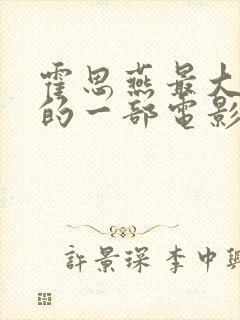 霍思燕最大
的一部電影
許景琛 李中興